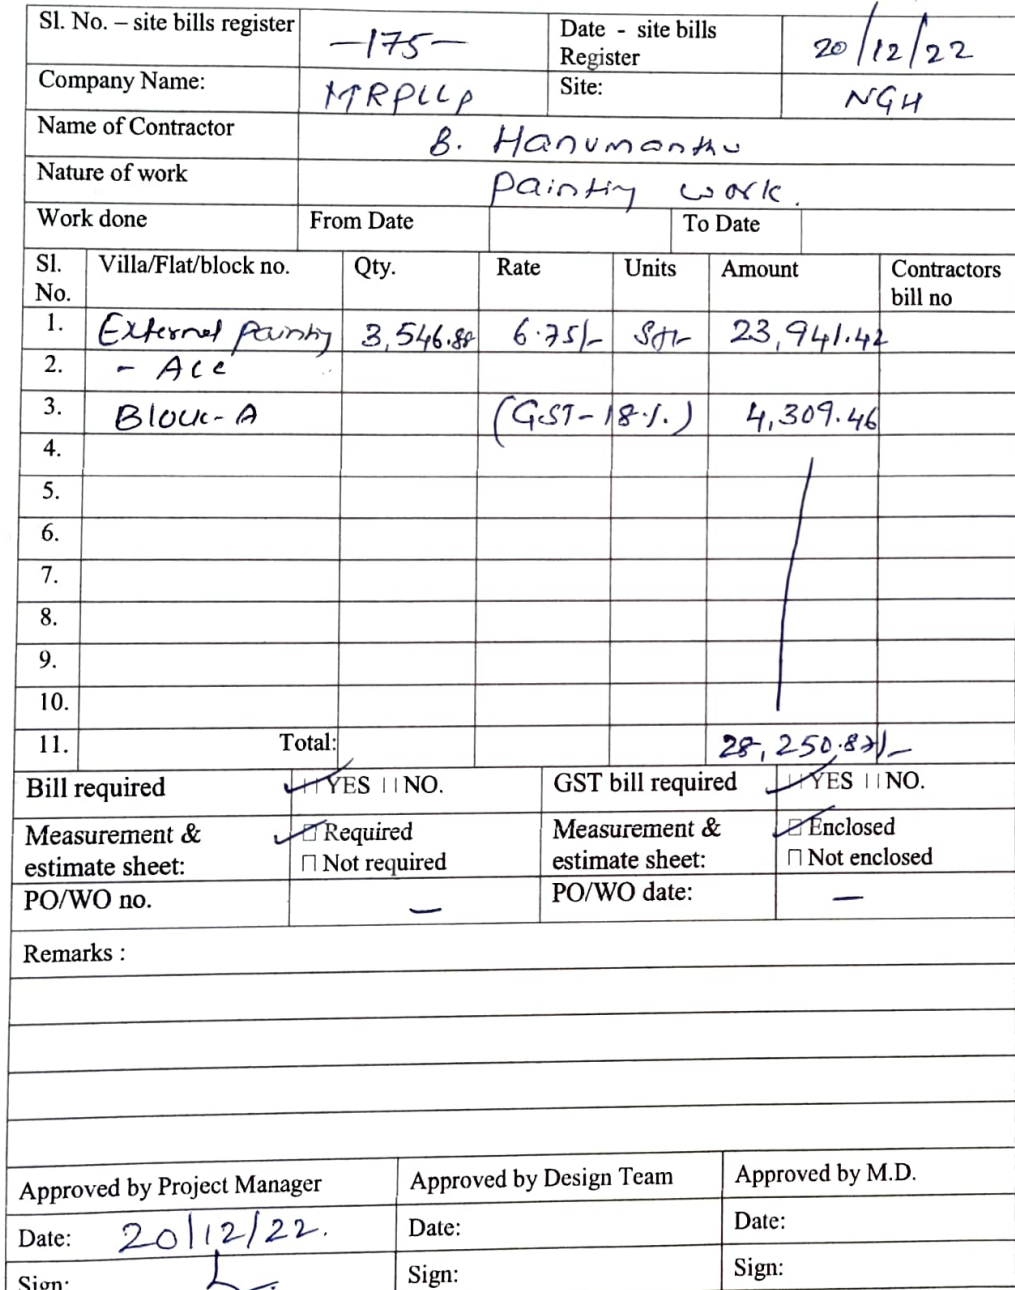 Sl. No. – site bills register —175— Date - site bills Register 20/12/22
Company Name: MRPLLP Site: NGH
Name of Contractor B. Hanumanthu
Nature of work painting work.
Work done From Date To Date
Sl. No. Villa/Flat/block no. Qty. Rate Units Amount Contractors bill no
1. External painting 3,546.88 6.75/- Sft 23,941.42
2. - Ace
3. Block-A (GST-18%) 4,309.46
4.
5.
6.
7.
8.
9.
10.
11. Total: 28,250.87/-
Bill required YES NO. GST bill required YES NO.
Measurement & estimate sheet: Required Not required Measurement & estimate sheet: Enclosed Not enclosed
PO/WO no. — PO/WO date: —
Remarks :
Approved by Project Manager Approved by Design Team Approved by M.D.
Date: 20/12/22. Date: Date:
Sign: Sign: Sign: